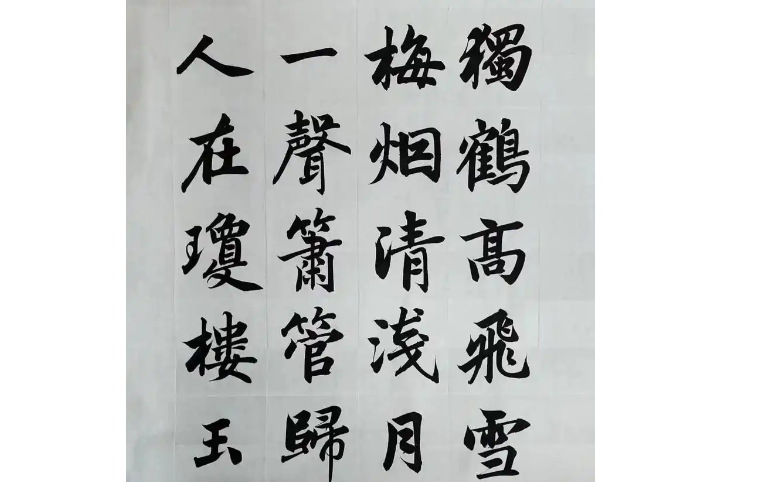 獨鶴高飛雪
梅烟清淺月
一聲簫管歸
人在瓊樓玉